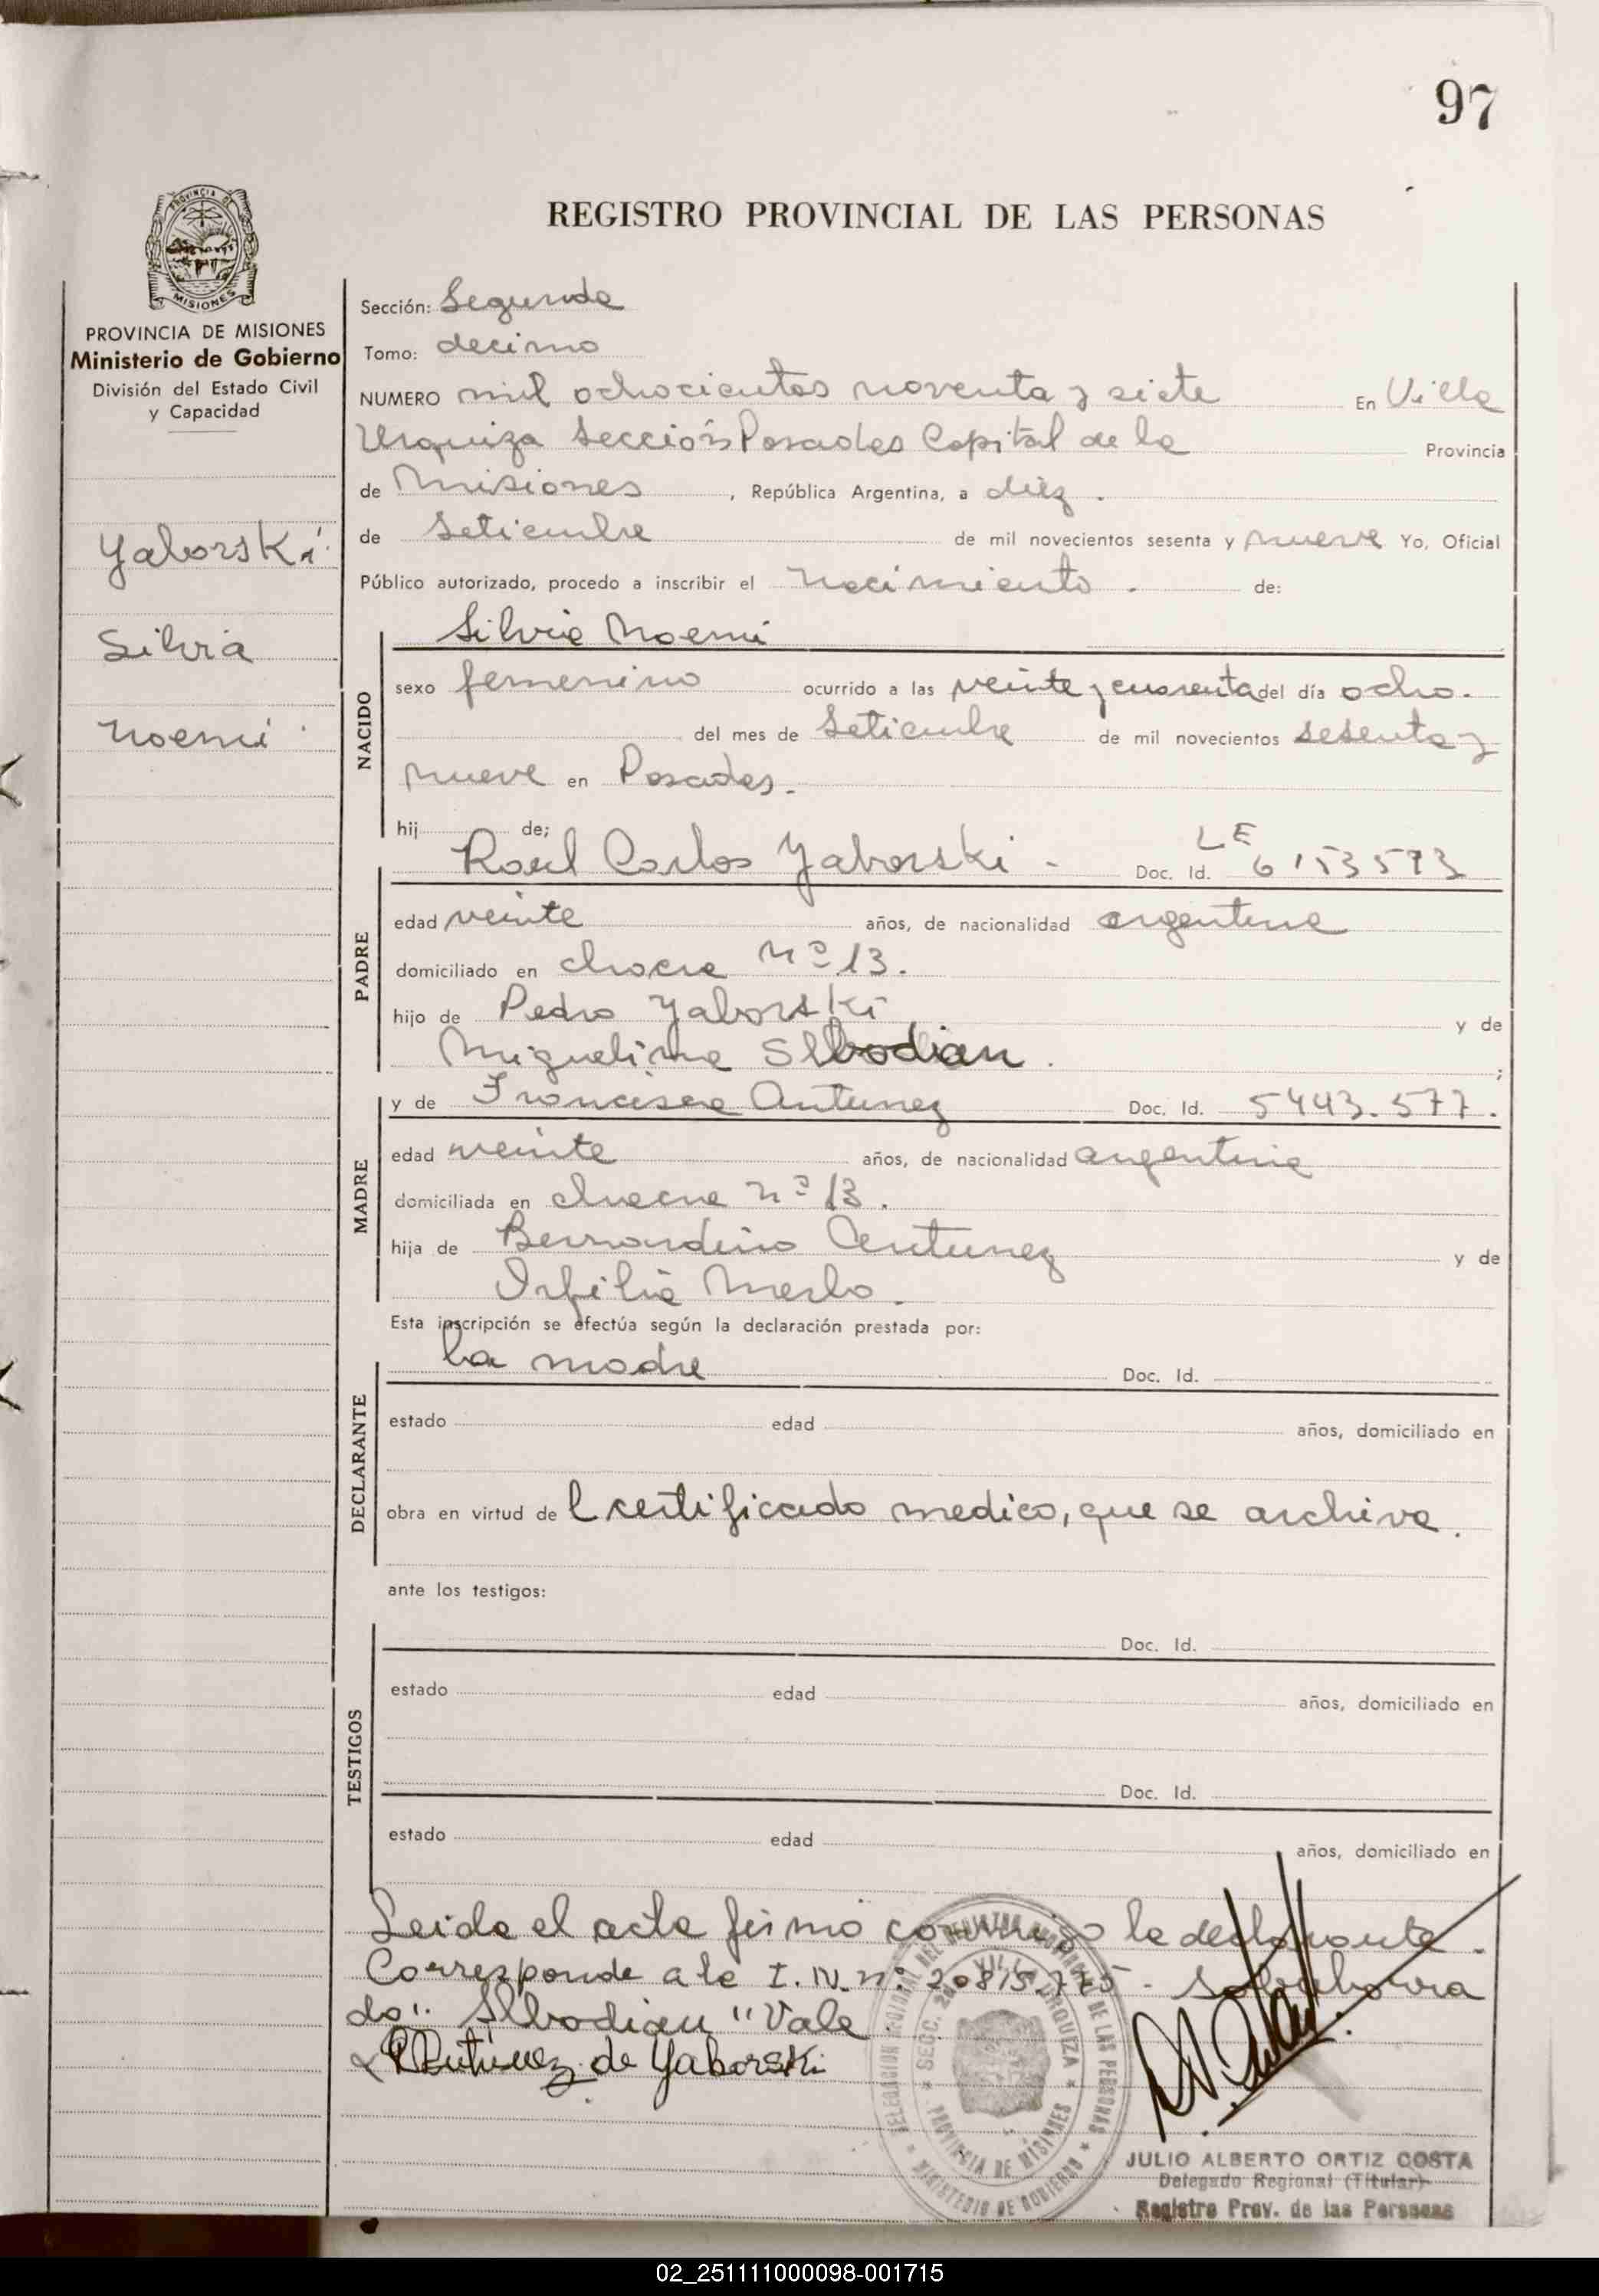 97
PROVINCIA DE
MISIONES
REGISTRO PROVINCIAL DE LAS PERSONAS
PROVINCIA DE MISIONES
Ministerio de Gobierno
División del Estado Civil
y Capacidad
Yaborski
Silvia
Noemi
Sección: Segunda
Tomo: decimo
NUMERO mil ochocientos noventa y siete En Villa
Urquiza Sección Posadas Capital de la Provincia
de Misiones, República Argentina, a diez.
de Setiembre de mil novecientos sesenta y nueve Yo, Oficial
Público autorizado, procedo a inscribir el nacimiento. de:
NACIDO
Silvia Noemi
sexo femenino ocurrido a las veinte y cuarenta del día ocho.
del mes de Setiembre de mil novecientos sesenta y
nueve en Posadas.
hij de;
PADRE
Raul Carlos Yaborski - Doc. Id. LE 6153573
edad veinte años, de nacionalidad argentina
domiciliado en chacra nº 13.
hijo de Pedro Yaborski y de
Miguelina Slbodian. ;
MADRE
y de Francisca Antunez Doc. Id. 5443.577.
edad veinte años, de nacionalidad argentina
domiciliada en chacra nº 13.
hija de Bernardino Antunez y de
Orfilia Merlo.
Esta inscripción se efectúa según la declaración prestada por:
DECLARANTE
la madre Doc. Id.
estado edad años, domiciliado en
obra en virtud de l certificado medico, que se archiva.
ante los testigos:
TESTIGOS
Doc. Id.
estado edad años, domiciliado en
Doc. Id.
estado edad años, domiciliado en
Leida el acta firmó conmigo la declarante.
Corresponde a la I.N. nº 20815.775 - Sobreborra
do". Slbodian "Vale
Antunez de Yaborski
DELEGACION REGIONAL DEL REGISTRO PROVINCIAL DE LAS PERSONAS
SECC. 2a VILLA URQUIZA
PROVINCIA DE MISIONES
MINISTERIO DE GOBIERNO
JULIO ALBERTO ORTIZ COSTA
Delegado Regional (Titular)
Registro Prov. de las Personas
02_251111000098-001715